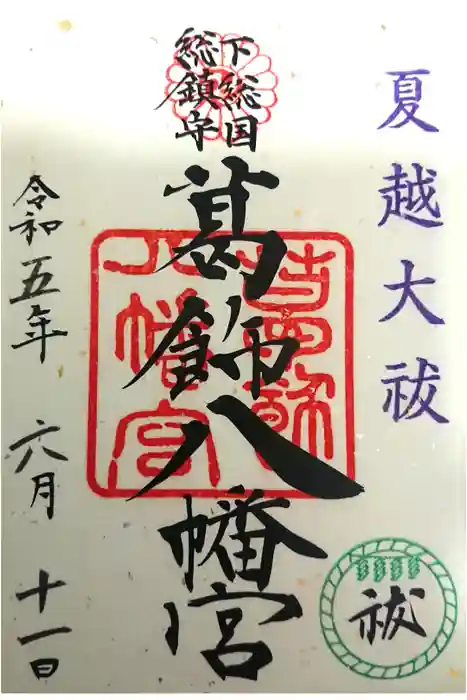 夏越大祓
祓
下総国
総鎮守
葛飾八幡宮
葛飾
八幡宮
令和五年 六月 十一日